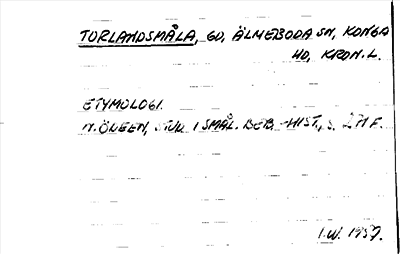 TORLANDSMÅLA, GD, ÄLMEBODA SN, KONGA
HD, KRON. L.
ETYMOLOGI.
STUD. I SMÅL. BEB.-HIST., S.
I.W. 1957.